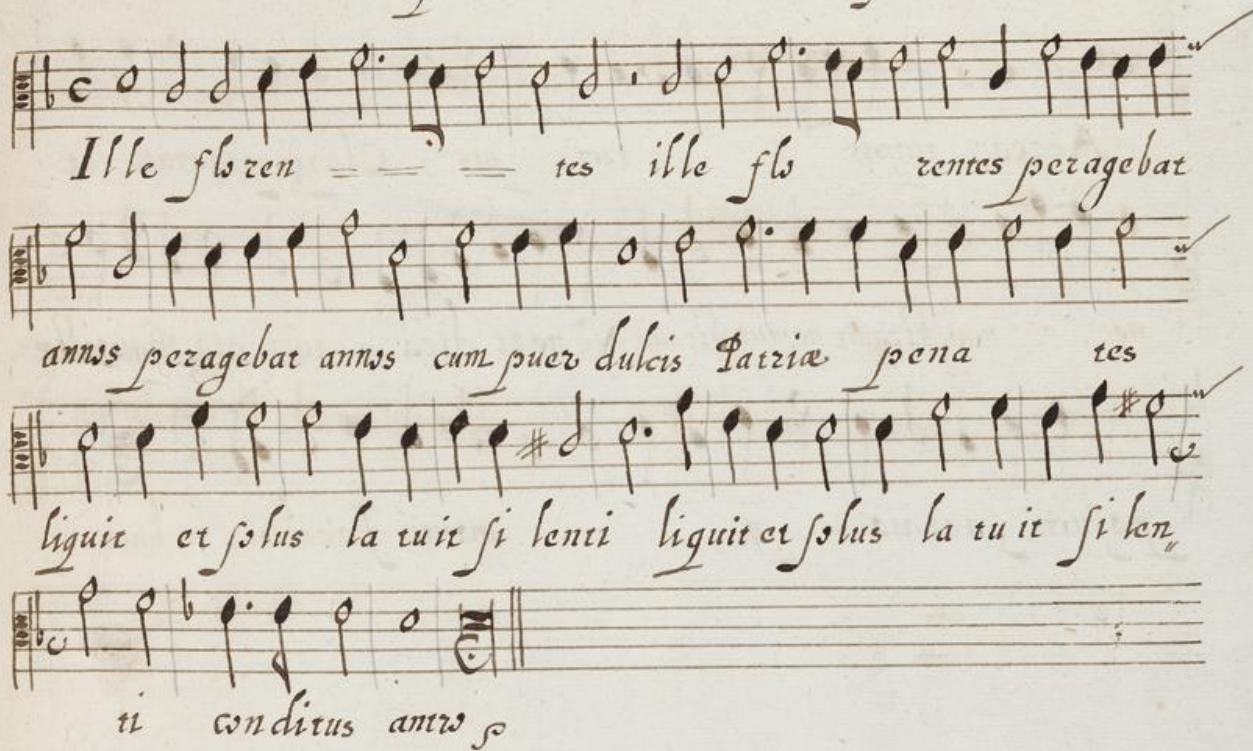 Ille floren tes ille flo rentes peragebat
annos peragebat annos cum puer dulcis Patriæ pena tes
liquit et solus la tuit si lenti liquit et solus la tu it si len„
ti conditus antro